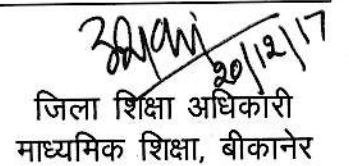 20/12/17
जिला शिक्षा अधिकारी
माध्यमिक शिक्षा, बीकानेर